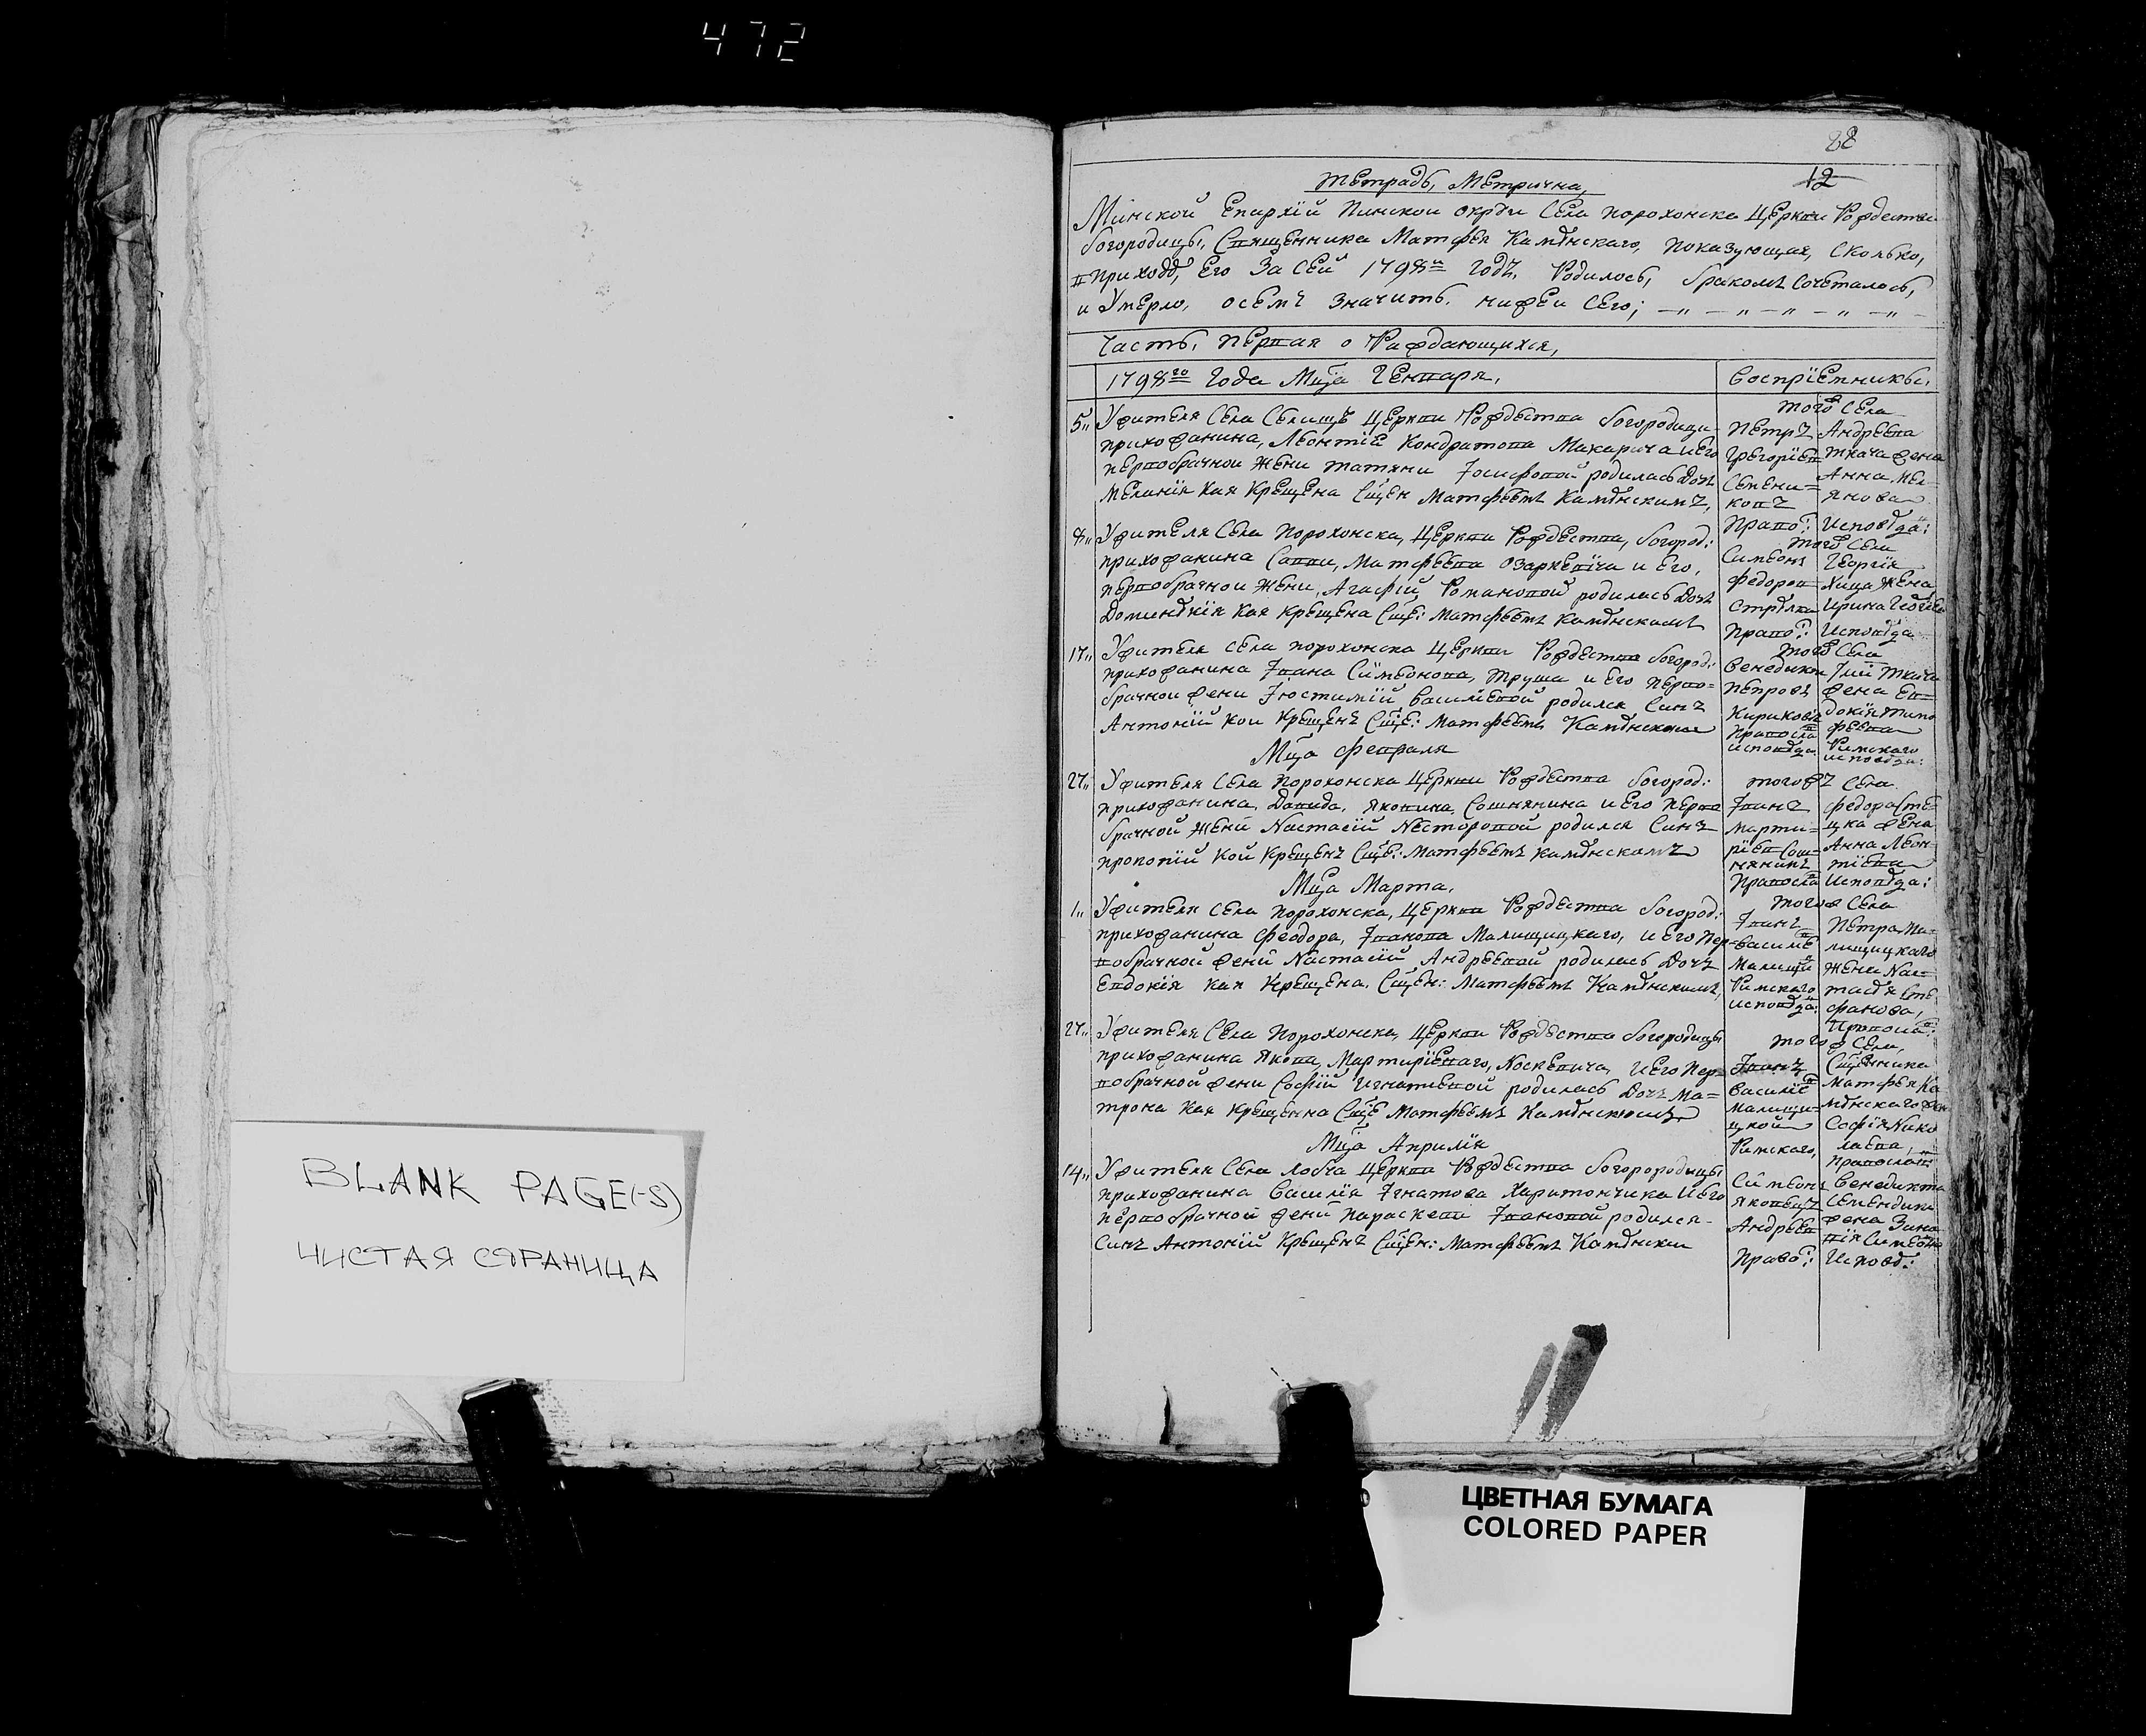 472
BLANK PAGE(-S)
ЧИСТАЯ СТРАНИЦА
88
12
Тетрадь, Метрична,
Минской Епархїи Пинскои округи Села порохонска Церкви Рождества
богородицы, Священника Матфея Камѣнскаго, показующая, сколько,
в приходѣ, Его За сей 1798й годъ, Родилось, бракомъ сочеталось,
и Умерло, осемъ значитъ. нижеи сего;
Часть, первая о Раждающихся,
1798го Года Мца Генваря.
Воспрїемникы.
5,, Ужителя Села Селищъ Церкви Рождества богородици
прихожанина, Леонтїе Кондратова Макарича и его
первобрачной жени татяни Iосифовой родилась Дочъ
Меланїя кая Крещена Сщен Матфеемъ Камѣнскимъ,
того Села
Петръ
Грегорїев
Семени=
ковъ
Право:
Андреева
ткача жена
Анна
Исповѣда:
8,, Ужителя Села Порохонска, Церкви Рождества, богород:
прихожанина Саввы, Матфеева Озаркевїча и Его,
первобрачной жени, Агафїи, Романовой родилась Дочъ
Доминѣкїя кая крещена Сще: Матфеемъ Камѣнскимъ
того Села
Симеонъ
Федоров
Стрѣлка
Право:
Георгїя
Хица жена
Ирина
Исповѣда
17,, Ужителя села порохонска Церкви Рождества богород:
прихожанина Iвана Симеонова, Труша и Его перво=
брачной жени Iюстимїи василевой родился Синъ
Антонїй кои Крещенъ Сще: Матфеемъ Камѣнскимъ
того Села
Венедикт
Петровъ
Кирикови
Правосла
исповѣда
ткача
жена Ев=
докїя Тимо
феева
Римскаго
исповѣда:
Мца Февраля
27,, Ужителя Села Порохонска Церкви Рождества богород:
прихожанина, Давида, Яковина, Сошнянина и Его перво
брачной жени Настасїи Несторовой родился Синъ
прокопїй кой Крещенъ Сще: Матфеемъ Камѣнскимъ
тогожъ Села
Iванъ
Марти=
рїев Сош=
нянинъ
Правосла
Федора Сте
цка жена
Анна Леон=
тїева
Исповѣда:
Мца Марта,
1,, Ужителя Села Порохонска, Церкви Рождества богород:
прихожанина Феодора, Iванова Малищицкаго, и его пер=
вобрачной жени Настасїй Андреевой родилась Дочъ
Евдокїя кая Крещена, Сщен: Матфеемъ Камѣнскимъ,
тогож Села
Iванъ
василїе
Малищи
Римскаго
исповѣда:
Петра Ма=
лищицкаго
жена Нас=
тасїя Сте
фанова,
Правосла:
27,, Ужителя Села Порохонска, Церкви Рождества богородицы
прихожанина Якова, Мартирїеваго, Носкевича, и Его пер=
вобрачной жени Софїй Игнатевой родилась Дочъ Ма=
трона кая крещенна Сще Матфеемъ Камѣнскимъ
тогож Села,
Iванъ
Василїе
Малищи=
цкой
Римскаго,
Сщенника
Матфея Ка
мѣнскаго жен
Софїя Нико
лаева,
Правосла
Мца Априлїя
14,, Ужителя Села Лобча Церкви Рождества богорородицы
прихожанина Василїя Iгнатова Харитончика и его
первобрачной жени параскеви Iвановой родился
Синъ Антонїй Крещенъ Сщен: Матфеемъ Камѣнским
Симеонъ
Яковъ
Андреев
Право:
Венедикта
Семендика
жена Зино
вїя Симеоно
Исповѣд:
ЦВЕТНАЯ БУМАГА
COLORED PAPER